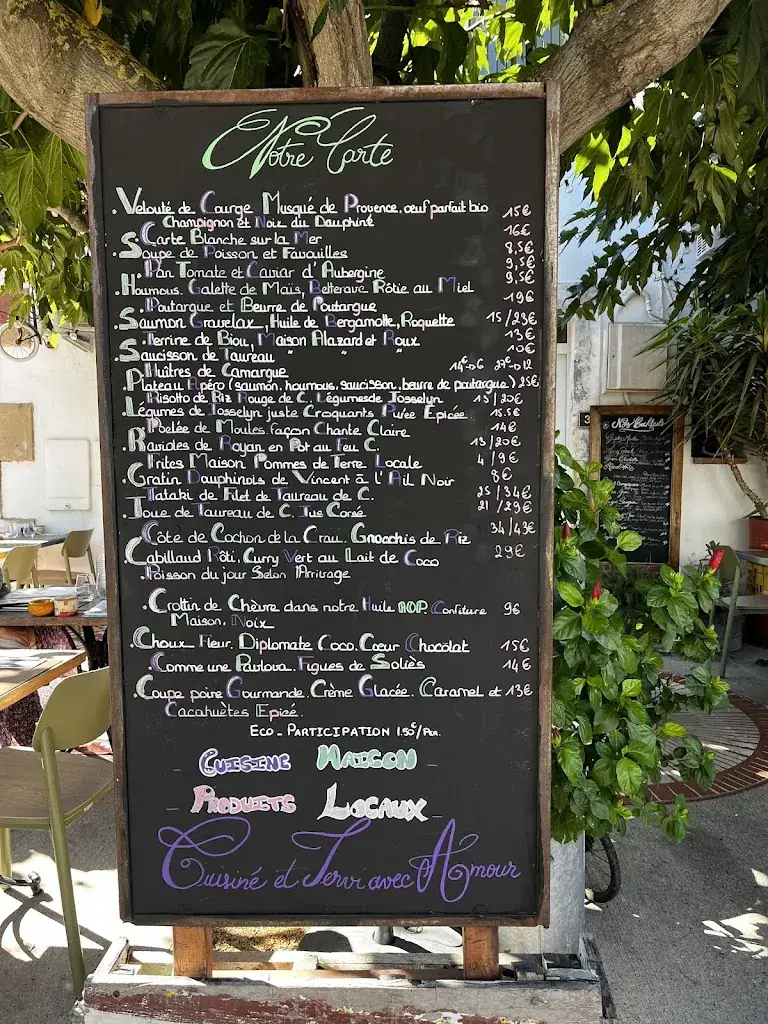 Notre Carte
. Velouté de Courge Musqué de Provence. œuf parfait bio 15€
Champignon et Noix du Dauphiné
. Carte Blanche sur la Mer 16€
. Soupe de Poisson et Favouilles 8,5€
. Pan Tomate et Caviar d'Aubergine 9,5€
. Houmous. Galette de Maïs, Betterave Rôtie au Miel 9,5€
. Poutargue et Beurre de Poutargue 19€
. Saumon Gravelax, Huile de Bergamotte, Roquette 15/23€
. Terrine de Biou, Maison Alazard et Roux 13€
. Saucisson de Taureau " " " 10€
. Huîtres de Camargue 14€-D6 27€-D12
. Plateau Apéro (saumon, houmous, saucisson, beurre de poutargue) 25€
. Risotto de Riz Rouge de C. Légumes de Josselyn 13/20€
. Légumes de Josselyn juste Croquants Purée Epicée 15.5€
. Poêlée de Moules façon Chante Claire 14€
. Ravioles de Royan en Pot au Feu C. 13/20€
. Frites Maison Pommes de Terre Locale 4/9€
. Gratin Dauphinois de Vincent à l'Ail Noir 8€
. Tataki de Filet de Taureau de C. 25/34€
. Joue de Taureau de C. Jus Corsé 21/29€
. Côte de Cochon de la Crau. Gnocchis de Riz 34/43€
. Cabillaud Rôti, Curry Vert au Lait de Coco 29€
. Poisson du jour Selon l'Arrivage
. Crottin de Chèvre dans notre Huile AOP. Confiture 9€
Maison, Noix
. Choux Fleur. Diplomate Coco. Cœur Chocolat 15€
. Comme une Pavlova. Figues de Soliès 14€
. Coupe poire Gourmande. Crème Glacée. Caramel et 13€
Cacahuètes Epicé.
Eco-Participation 1.50€/Per.
- Cuisine Maison -
- Produits Locaux -
Cuisiné et Servi avec Amour
3